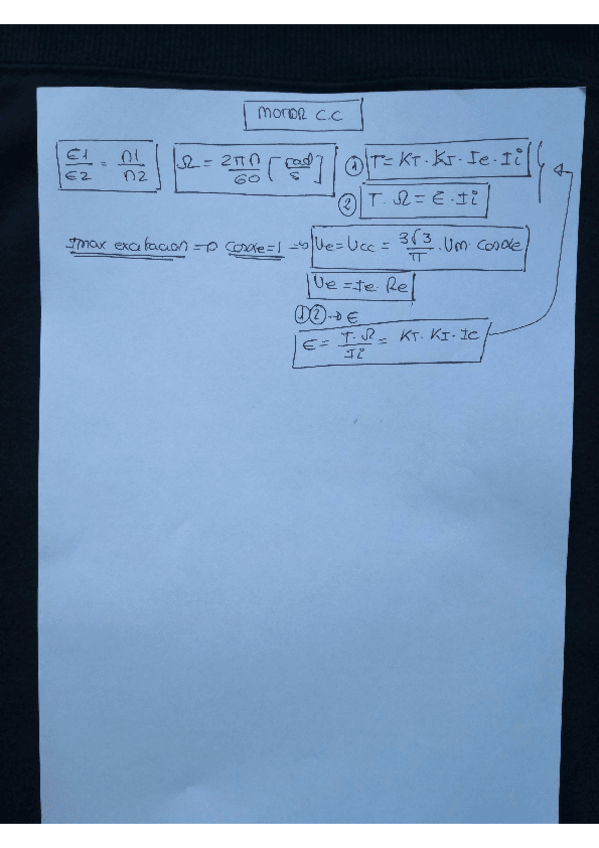 MOTOR C.C
E1/E2 = n1/n2   Ω = 2πn/60 [rad/s]   ① T = KT · KI · Ie · Ii
② T · Ω = E · Ii
Imax excitacion => cosα=1 → Ue = Ucc = 3√3/π · Um · cosα
Ue = Ie · Re
①② → E
E = T · Ω/Ii = KT · KI · Ie